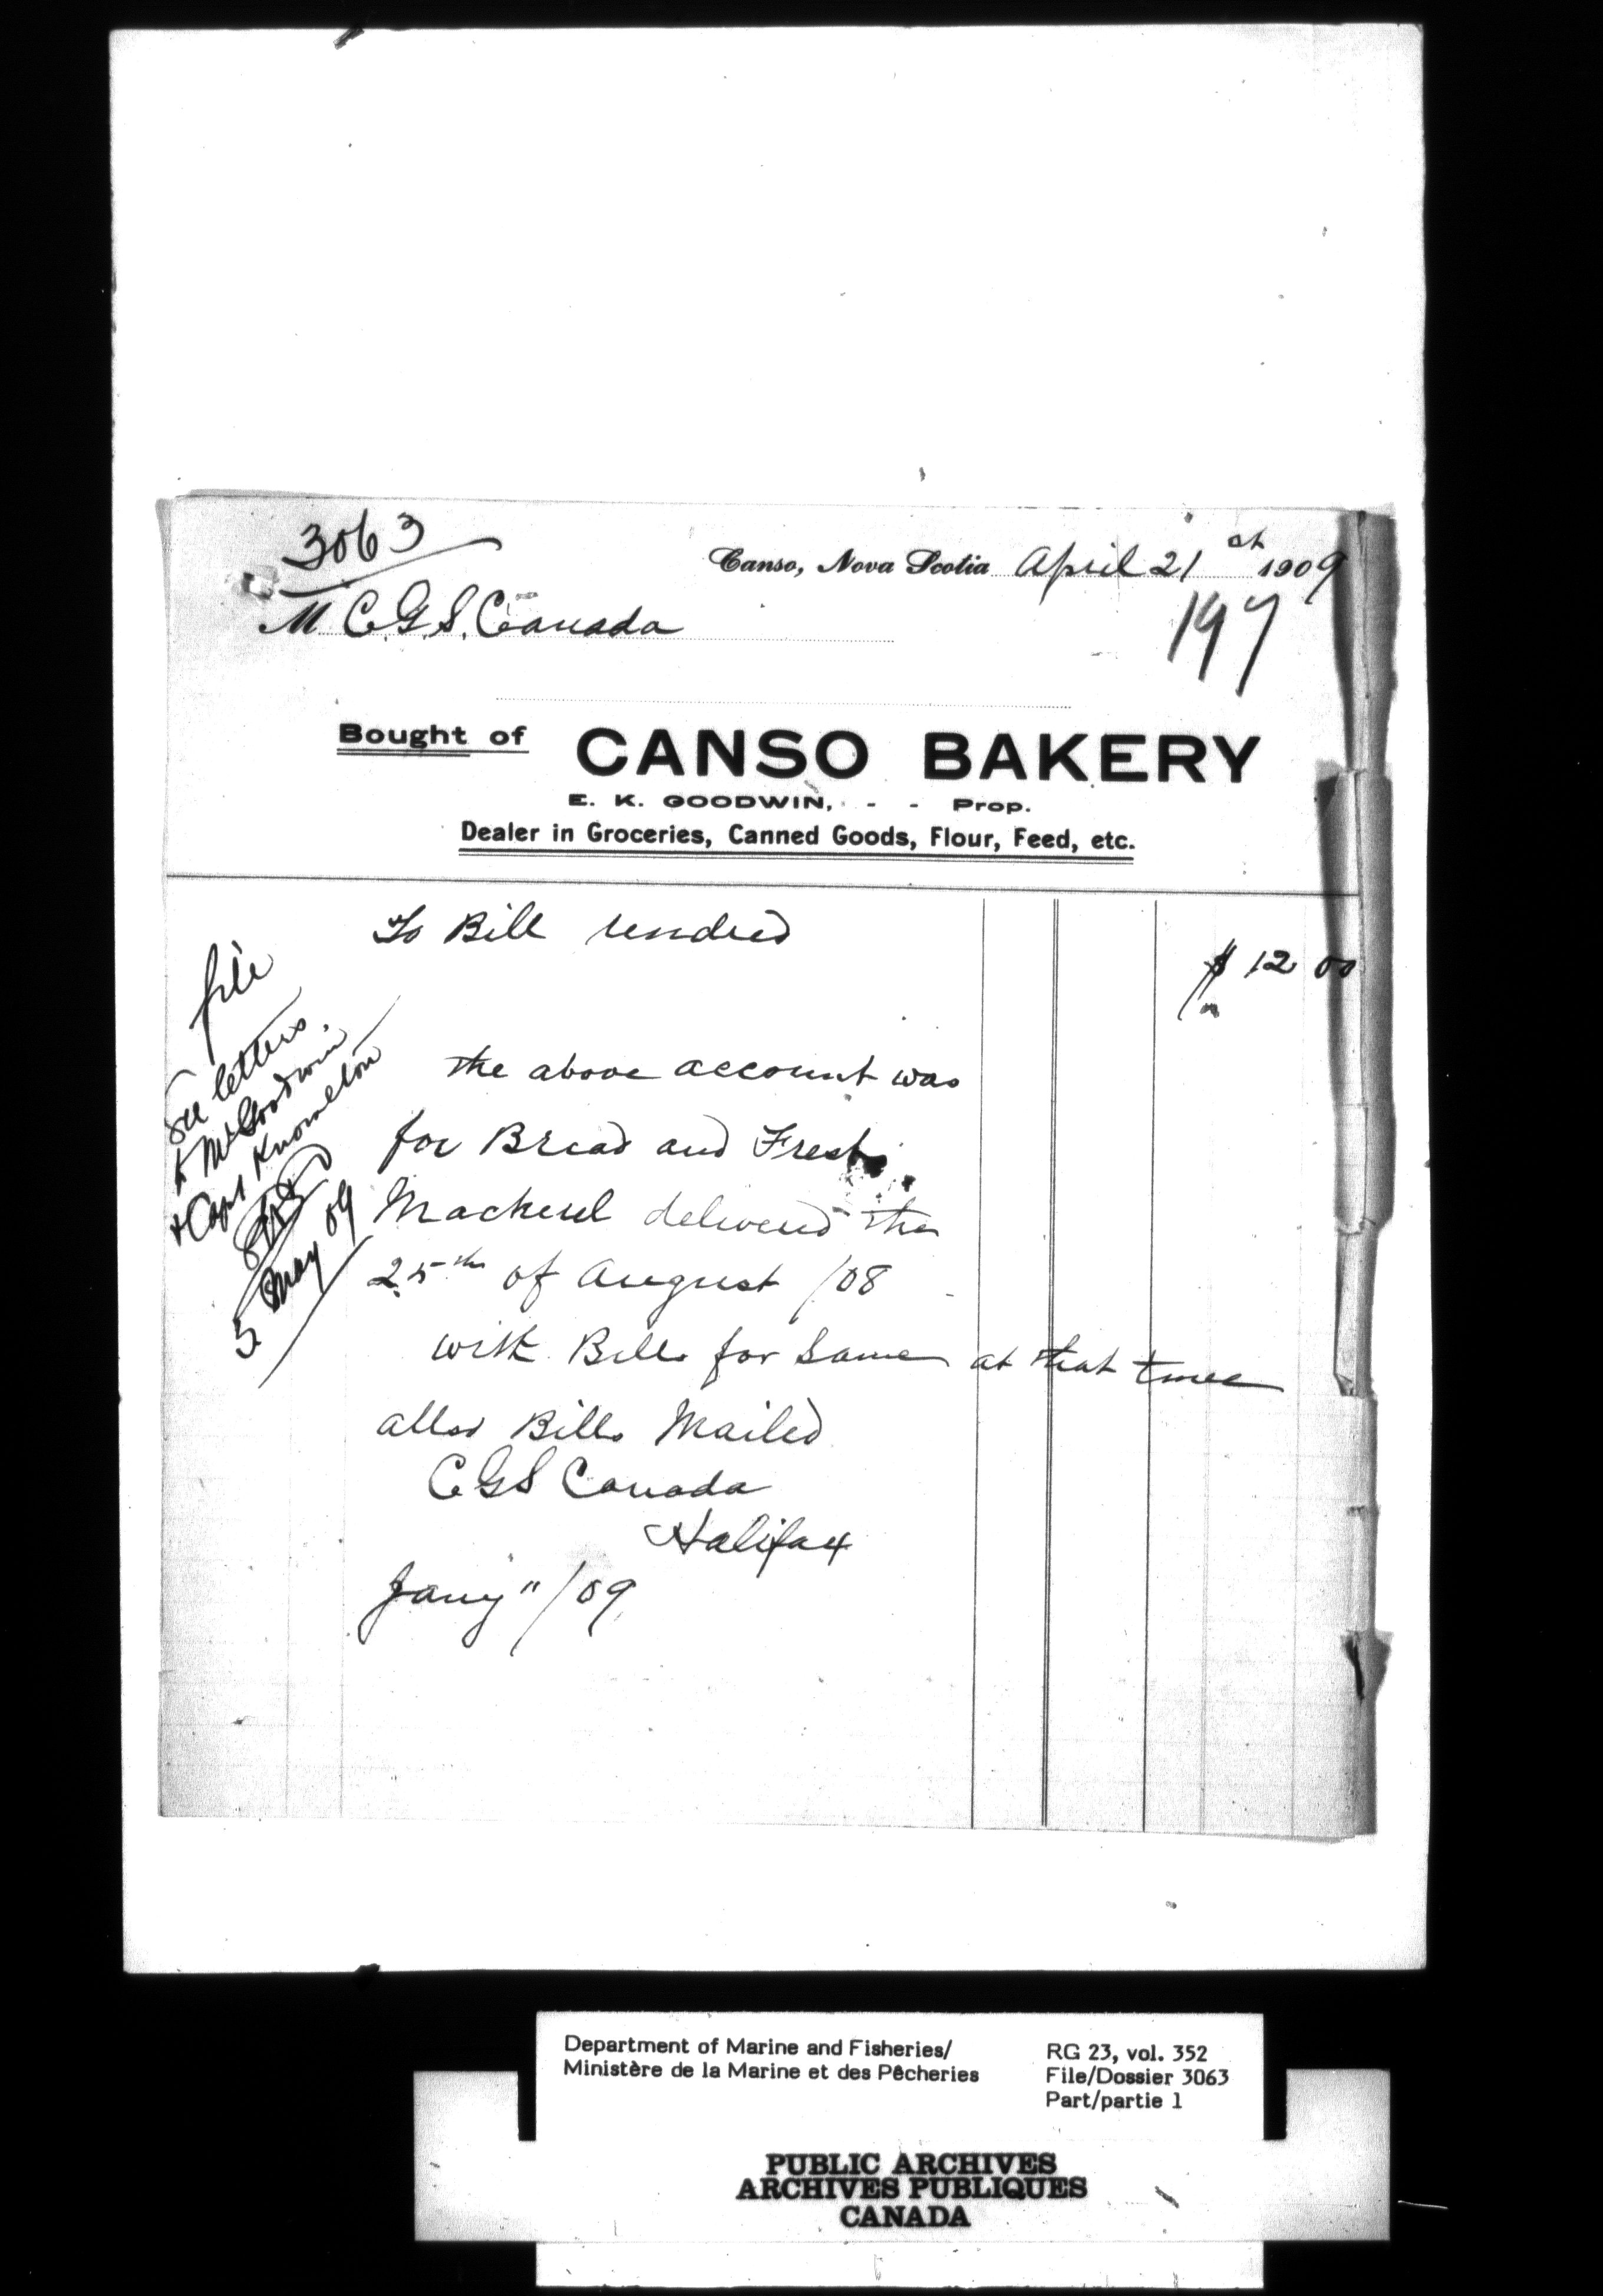 3063
Canso, Nova Scotia April 21st 1909
M C.G.S. Canada
197
Bought of CANSO BAKERY
E. K. GOODWIN, - - Prop.
Dealer in Groceries, Canned Goods, Flour, Feed, etc.
To Bill rendred
$ 12 00
file
See letters
to Mr Goodwin
& Capt Knowlton
5 May 09
the above account was
for Bread and Fresh
Mackerel delivered the
25th of August /08
with Bill for Same at that time
allso Bill Mailed
C G S Canada
Halifax
Jany " /09
Department of Marine and Fisheries/
Ministère de la Marine et des Pêcheries
RG 23, vol. 352
File/Dossier 3063
Part/partie 1
PUBLIC ARCHIVES
ARCHIVES PUBLIQUES
CANADA